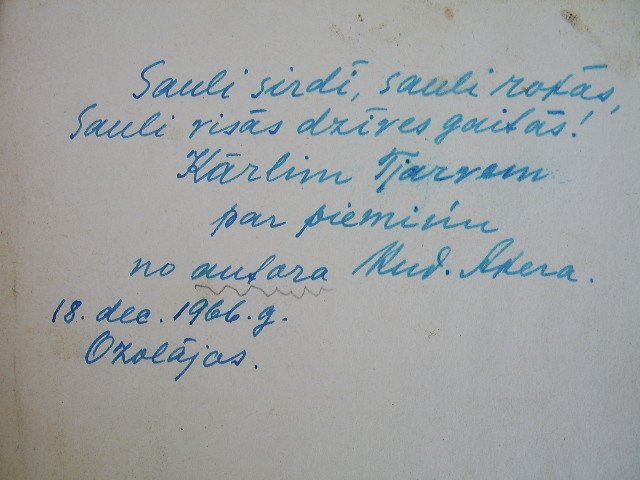 Sauli sirdī, sauli rokās,
Sauli visās dzīves gaitās!
Kārlim Tjarvem
par piemiņu
no autora Rud. Akera.
18. dec. 1966. g.
Ozolājos.